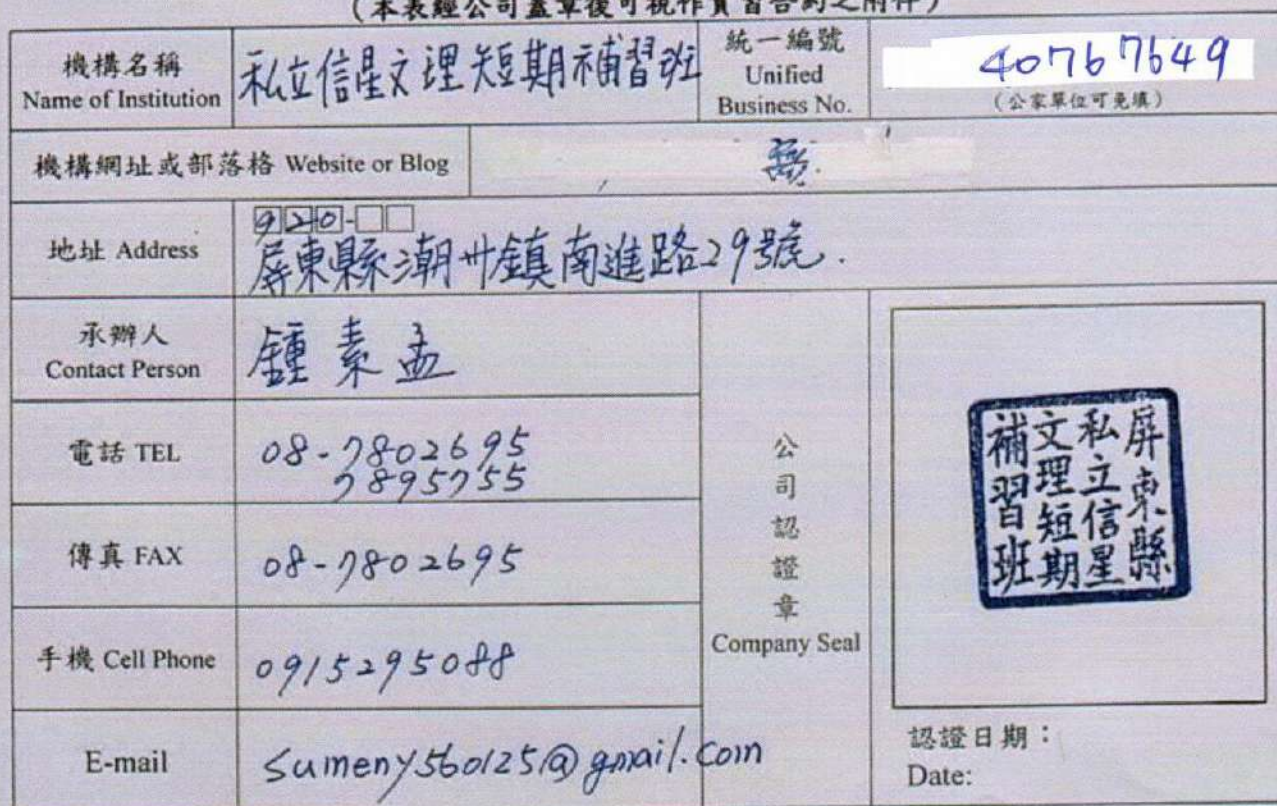 (本表經公司蓋章後可視作實習合約之附件)
機構名稱
Name of Institution
私立信星文理短期補習班
統一編號
Unified
Business No.
40767649
(公家單位可免填)
機構網址或部落格 Website or Blog
無.
地址 Address
920-□□
屏東縣潮州鎮南進路29號.
承辦人
Contact Person
鍾素孟
電話 TEL
08-7802695
7895755
傳真 FAX
08-7802695
手機 Cell Phone
0915295088
E-mail
sumeny560125@gmail.com
公司認證章
Company Seal
屏東縣
私立信星
文理短期
補習班
認證日期：
Date: